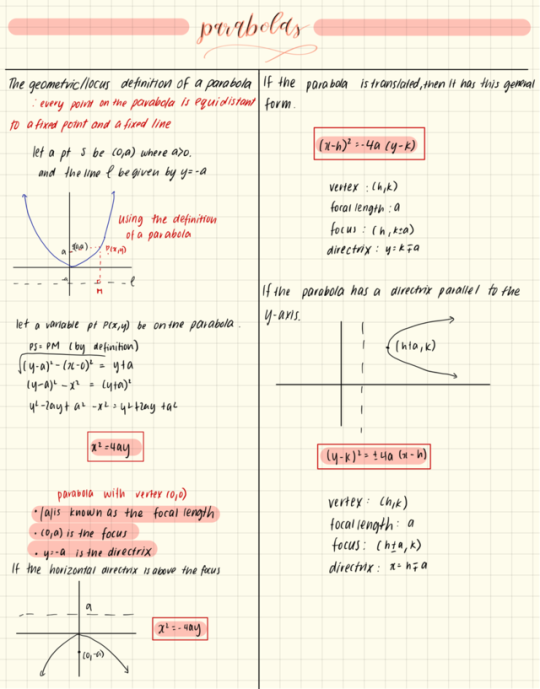 parabolas
The geometric/locus definition of a parabola
: every point on the parabola is equidistant
to a fixed point and a fixed line
let a pt S be (0,a) where a>0.
and the line l be given by y=-a
using the definition
of a parabola
a
P(x,y)
-a
M
l
let a variable pt P(x,y) be on the parabola.
PS=PM (by definition)
√(y-a)²-(x-0)² = y+a
(y-a)²-x² = (y+a)²
y²-2ay+a²-x²=y²+2ay+a²
x²=4ay
parabola with vertex (0,0)
• |a| is known as the focal length
• (0,a) is the focus
• y=-a is the directrix
If the horizontal directrix is above the focus
a
(0,-a)
x²=-4ay
If the parabola is translated, then it has this general
form.
(x-h)²=-4a (y-k)
vertex : (h,k)
focal length : a
focus : (h, k±a)
directrix : y=k∓a
If the parabola has a directrix parallel to the
y-axis.
(h±a, k)
(y-k)²=±4a (x-h)
vertex : (h,k)
focal length : a
focus : (h±a, k)
directrix : x=h∓a